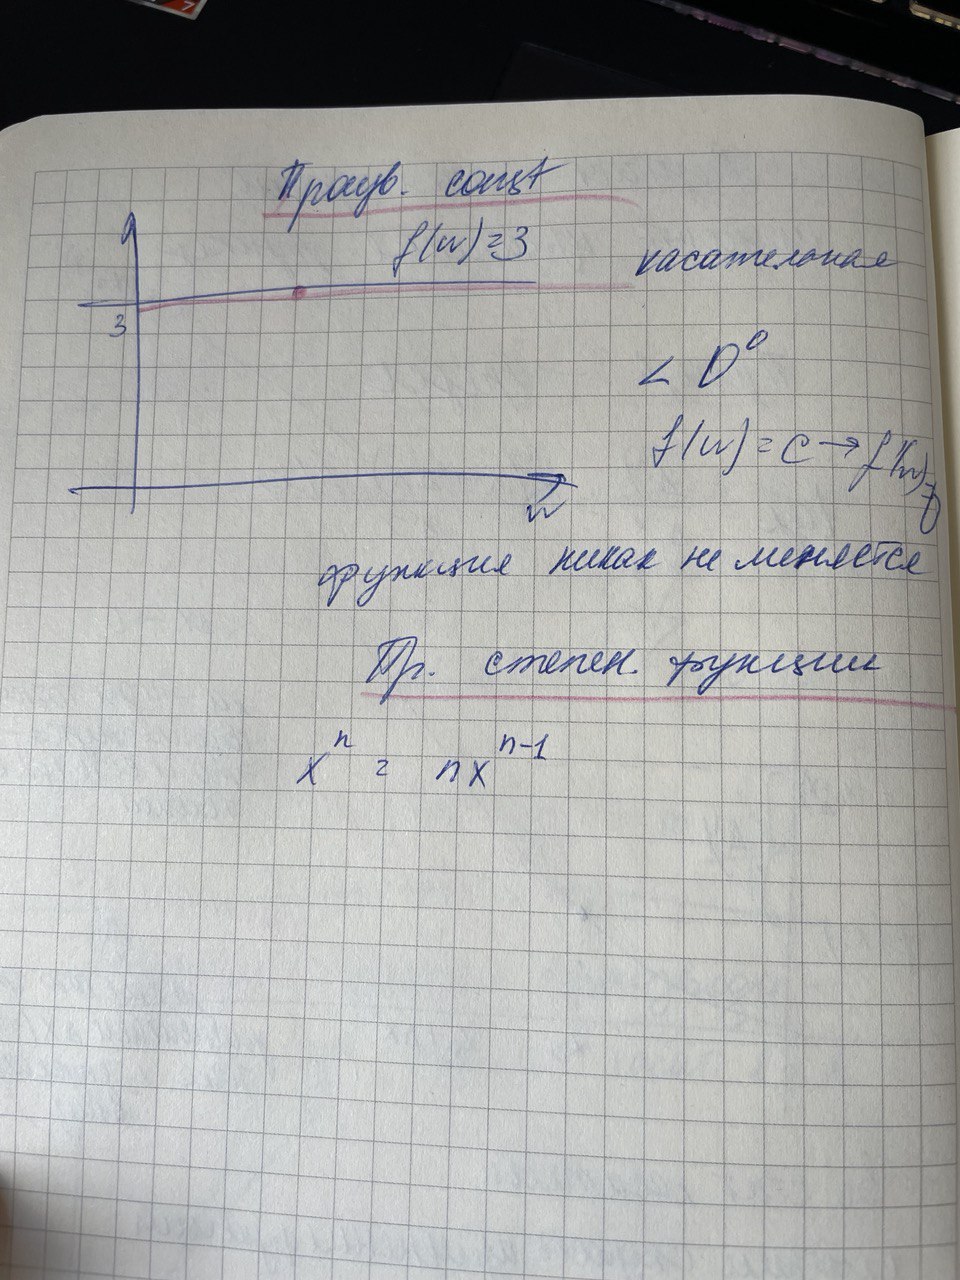 Произв. const
f(w)=3
касательная
3
< 0°
f(w)=c → f'(w)=0
w
функция никак не меняется
Пр. степен. функции
x^n = nx^{n-1}